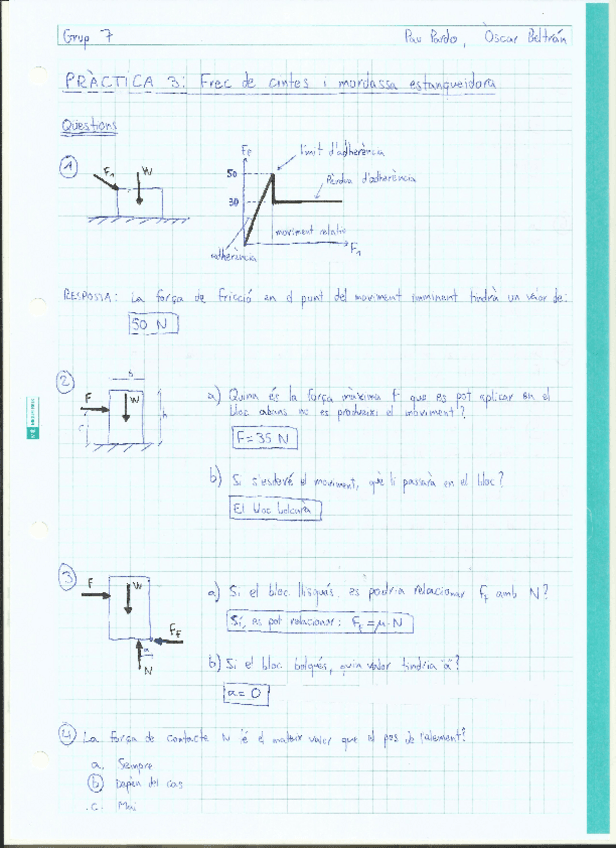 Grup 7 Pau Pardo, Òscar Beltrán
PRÀCTICA 3: Frec de cintes i mordassa estanqueidora
Qüestions
1 F1 W
Ff límit d'adherència
50 Pèrdua d'adherència
30
moviment relatiu
adherència F1
RESPOSTA: La força de fricció en el punt del moviment imminent tindrà un valor de:
50 N
2 F W h
a) Quina és la força màxima F que es pot aplicar en el
bloc abans no es produeixi el moviment?
F = 35 N
b) Si s'esdevé el moviment, què li passarà en el bloc?
El bloc bolcarà
3 F W Ff a N
a) Si el bloc llisqués, es podria relacionar Ff amb N?
Sí, es pot relacionar: Ff = μ · N
b) Si el bloc bolqués, quin valor tindria "a"?
a = 0
4 La força de contacte N té el mateix valor que el pes de l'element?
a. Sempre
b Depèn del cas
c. Mai